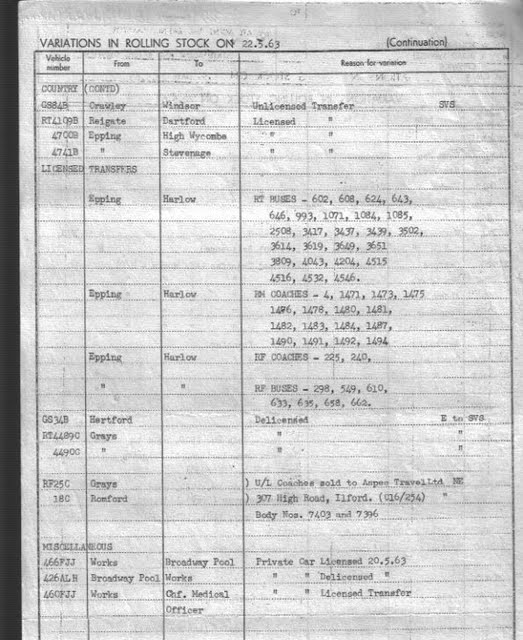 VARIATIONS IN ROLLING STOCK ON 22.5.63 (Continuation)
Vehicle number From To Reason for variation
COUNTRY (CONTD)
GS84B Crawley Windsor Unlicensed Transfer SVS
RT4109B Reigate Dartford Licensed "
4700B Epping High Wycombe " "
4741B " Stevenage " "
LICENSED TRANSFERS
Epping Harlow RT BUSES - 602, 608, 624, 643,
646, 993, 1071, 1084, 1085,
2508, 3417, 3437, 3439, 3502,
3614, 3619, 3649, 3651
3809, 4043, 4204, 4515
4516, 4532, 4546.
Epping Harlow RM COACHES - 4, 1471, 1473, 1475
1476, 1478, 1480, 1481,
1482, 1483, 1484, 1487,
1490, 1491, 1492, 1494
Epping Harlow RF COACHES - 225, 240,
" " RF BUSES - 298, 549, 610,
633, 635, 658, 662.
GS34B Hertford Delicensed E to SVS
RT4489C Grays " "
4490C " " "
RF25C Grays ) U/L Coaches sold to Aspec Travel Ltd NE
18C Romford ) 307 High Road, Ilford. (C16/254) "
Body Nos. 7403 and 7396
MISCELLANEOUS
466FJJ Works Broadway Pool Private Car Licensed 20.5.63
426ALH Broadway Pool Works " " Delicensed "
460FJJ Works Chf. Medical " " Licensed Transfer
Officer